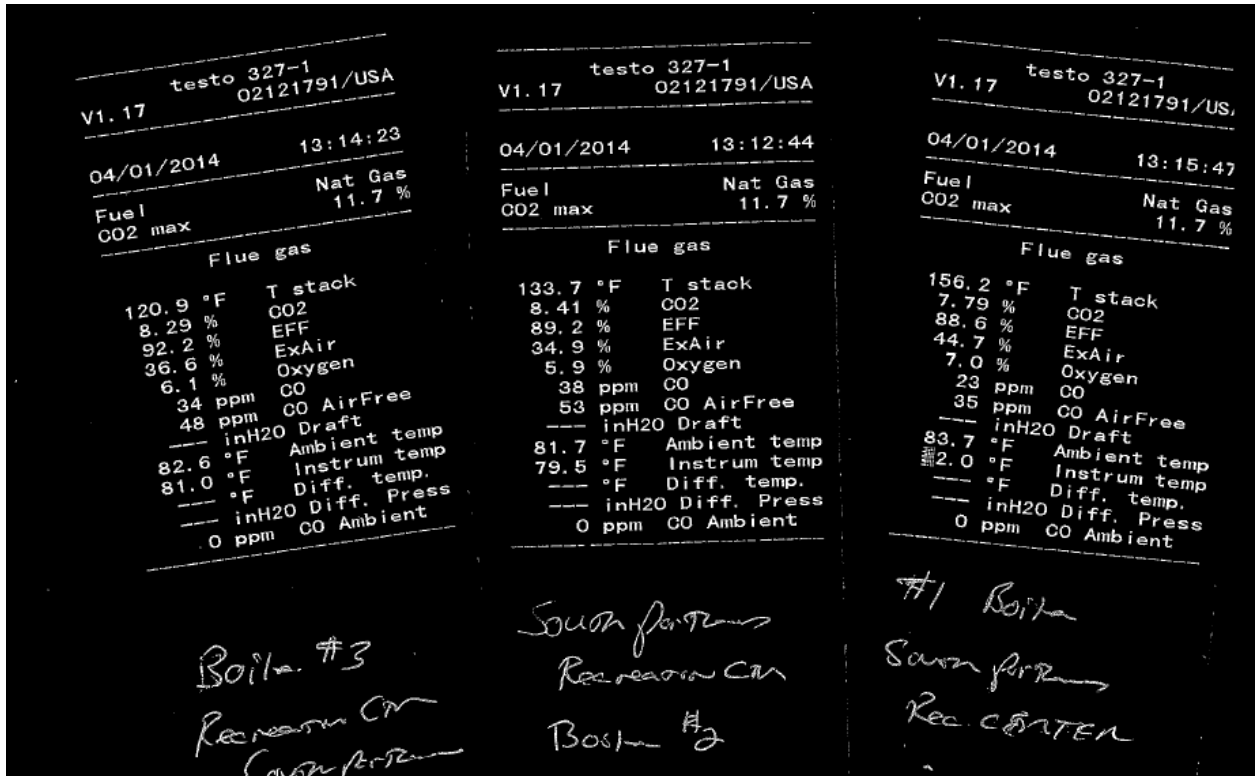 testo 327-1
V1.17 02121791/USA
04/01/2014 13:14:23
Fuel Nat Gas
CO2 max 11.7 %
Flue gas
120.9 °F T stack
8.29 % CO2
92.2 % EFF
36.6 % ExAir
6.1 % Oxygen
34 ppm CO
48 ppm CO AirFree
--- inH2O Draft
82.6 °F Ambient temp
81.0 °F Instrum temp
--- °F Diff. temp.
--- inH2O Diff. Press
0 ppm CO Ambient
Boiler #3
Recreation Ctr
South Portland
testo 327-1
V1.17 02121791/USA
04/01/2014 13:12:44
Fuel Nat Gas
CO2 max 11.7 %
Flue gas
133.7 °F T stack
8.41 % CO2
89.2 % EFF
34.9 % ExAir
5.9 % Oxygen
38 ppm CO
53 ppm CO AirFree
--- inH2O Draft
81.7 °F Ambient temp
79.5 °F Instrum temp
--- °F Diff. temp.
--- inH2O Diff. Press
0 ppm CO Ambient
South Portland
Recreation Ctr
Boiler #2
testo 327-1
V1.17 02121791/US
04/01/2014 13:15:47
Fuel Nat Gas
CO2 max 11.7 %
Flue gas
156.2 °F T stack
7.79 % CO2
88.6 % EFF
44.7 % ExAir
7.0 % Oxygen
23 ppm CO
35 ppm CO AirFree
--- inH2O Draft
83.7 °F Ambient temp
2.0 °F Instrum temp
--- °F Diff. temp.
--- inH2O Diff. Press
0 ppm CO Ambient
#1 Boiler
South Portland
Rec. CENTER